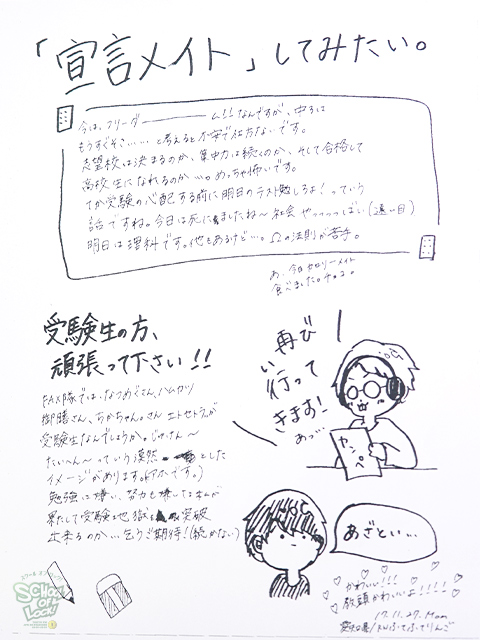 「宣言メイト」してみたい。
今は、フリーダーーーーム!!なんですが、中3は
もうすぐそこ……と考えると不安で仕方ないです。
志望校は決まるのか、集中力は続くのか、そして合格して
高校生になれるのか…。めっちゃ怖いです。
てか受験の心配する前に明日のテスト勉しろよ!っていう
話ですね。今日は死にましたね〜社会やっっっばい(遠い目)
明日は理科です。他もあるけど…。Ωの法則が苦手。
あ、今日カロリーメイト
食べました。チョコ。
受験生の方、
頑張って下さい!!
FAX隊では、なつめぐさん、ハムカツ
御膳さん、ちかちゃん。さん エトセトラが
受験生なんでしょうか。じゅけん〜
たいへん〜っていう漠然とした
イメージがあります。(アホです。)
勉強は嫌い、努力も嫌い
果たして受験地獄を突破
出来るのか…乞うご期待!(続かない)
再び
行って
きます!
あっ…
カンペ
あざとい…
かわいい!!!
校頭かわいいよ!!!!
17.11.27.Mon
愛知県/
SCHOOL OF LOCK!